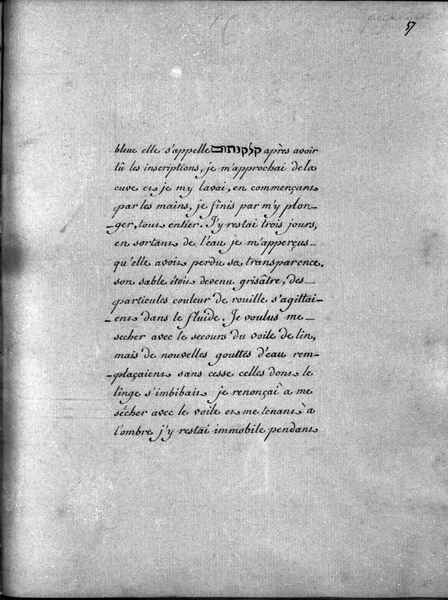 57
bleue elle s'appelle קלקנתום après avoir
lû les inscriptions, je m'approchai de la
cuve et je my lavai, en commençant
par les mains, je finis par m'y plon-
-ger, tout entier. J'y restai trois jours,
en sortant de l'eau je m'apperçus
qu'elle avoit perdu sa transparence.
son sable étoit devenu grisâtre, des
particules couleur de rouille s'agittai-
-ent dans le fluide. Je voulus me
secher avec le secours du voile de lin,
mais de nouvelles gouttes d'eau rem-
-plaçaient sans cesse celles dont le
linge s'imbibait je renonçai à me
sécher avec le voile et me tenant à
l'ombre j'y restai immobile pendant